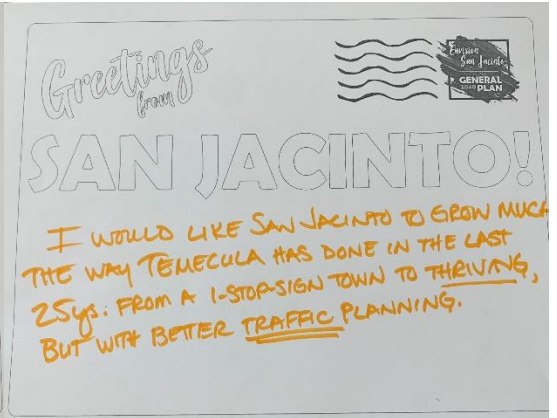 Greetings
from
Envision
San Jacinto
GENERAL
2040 PLAN
SAN JACINTO!
I WOULD LIKE SAN JACINTO TO GROW MUCH
THE WAY TEMECULA HAS DONE IN THE LAST
25ys: FROM A 1-STOP-SIGN TOWN TO THRIVING,
BUT WITH BETTER TRAFFIC PLANNING.